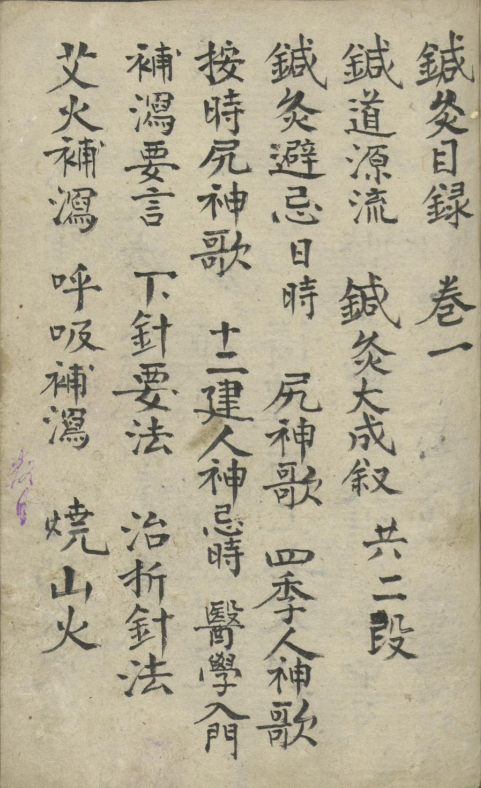 鍼灸目録　卷一
鍼道源流　鍼灸大成叙　共二段
鍼灸避忌日時　尻神歌　四季人神歌
按時尻神歌　十二建人神忌時　醫學入門
補瀉要言　下針要法　治折針法
艾火補瀉　呼吸補瀉　燒山火